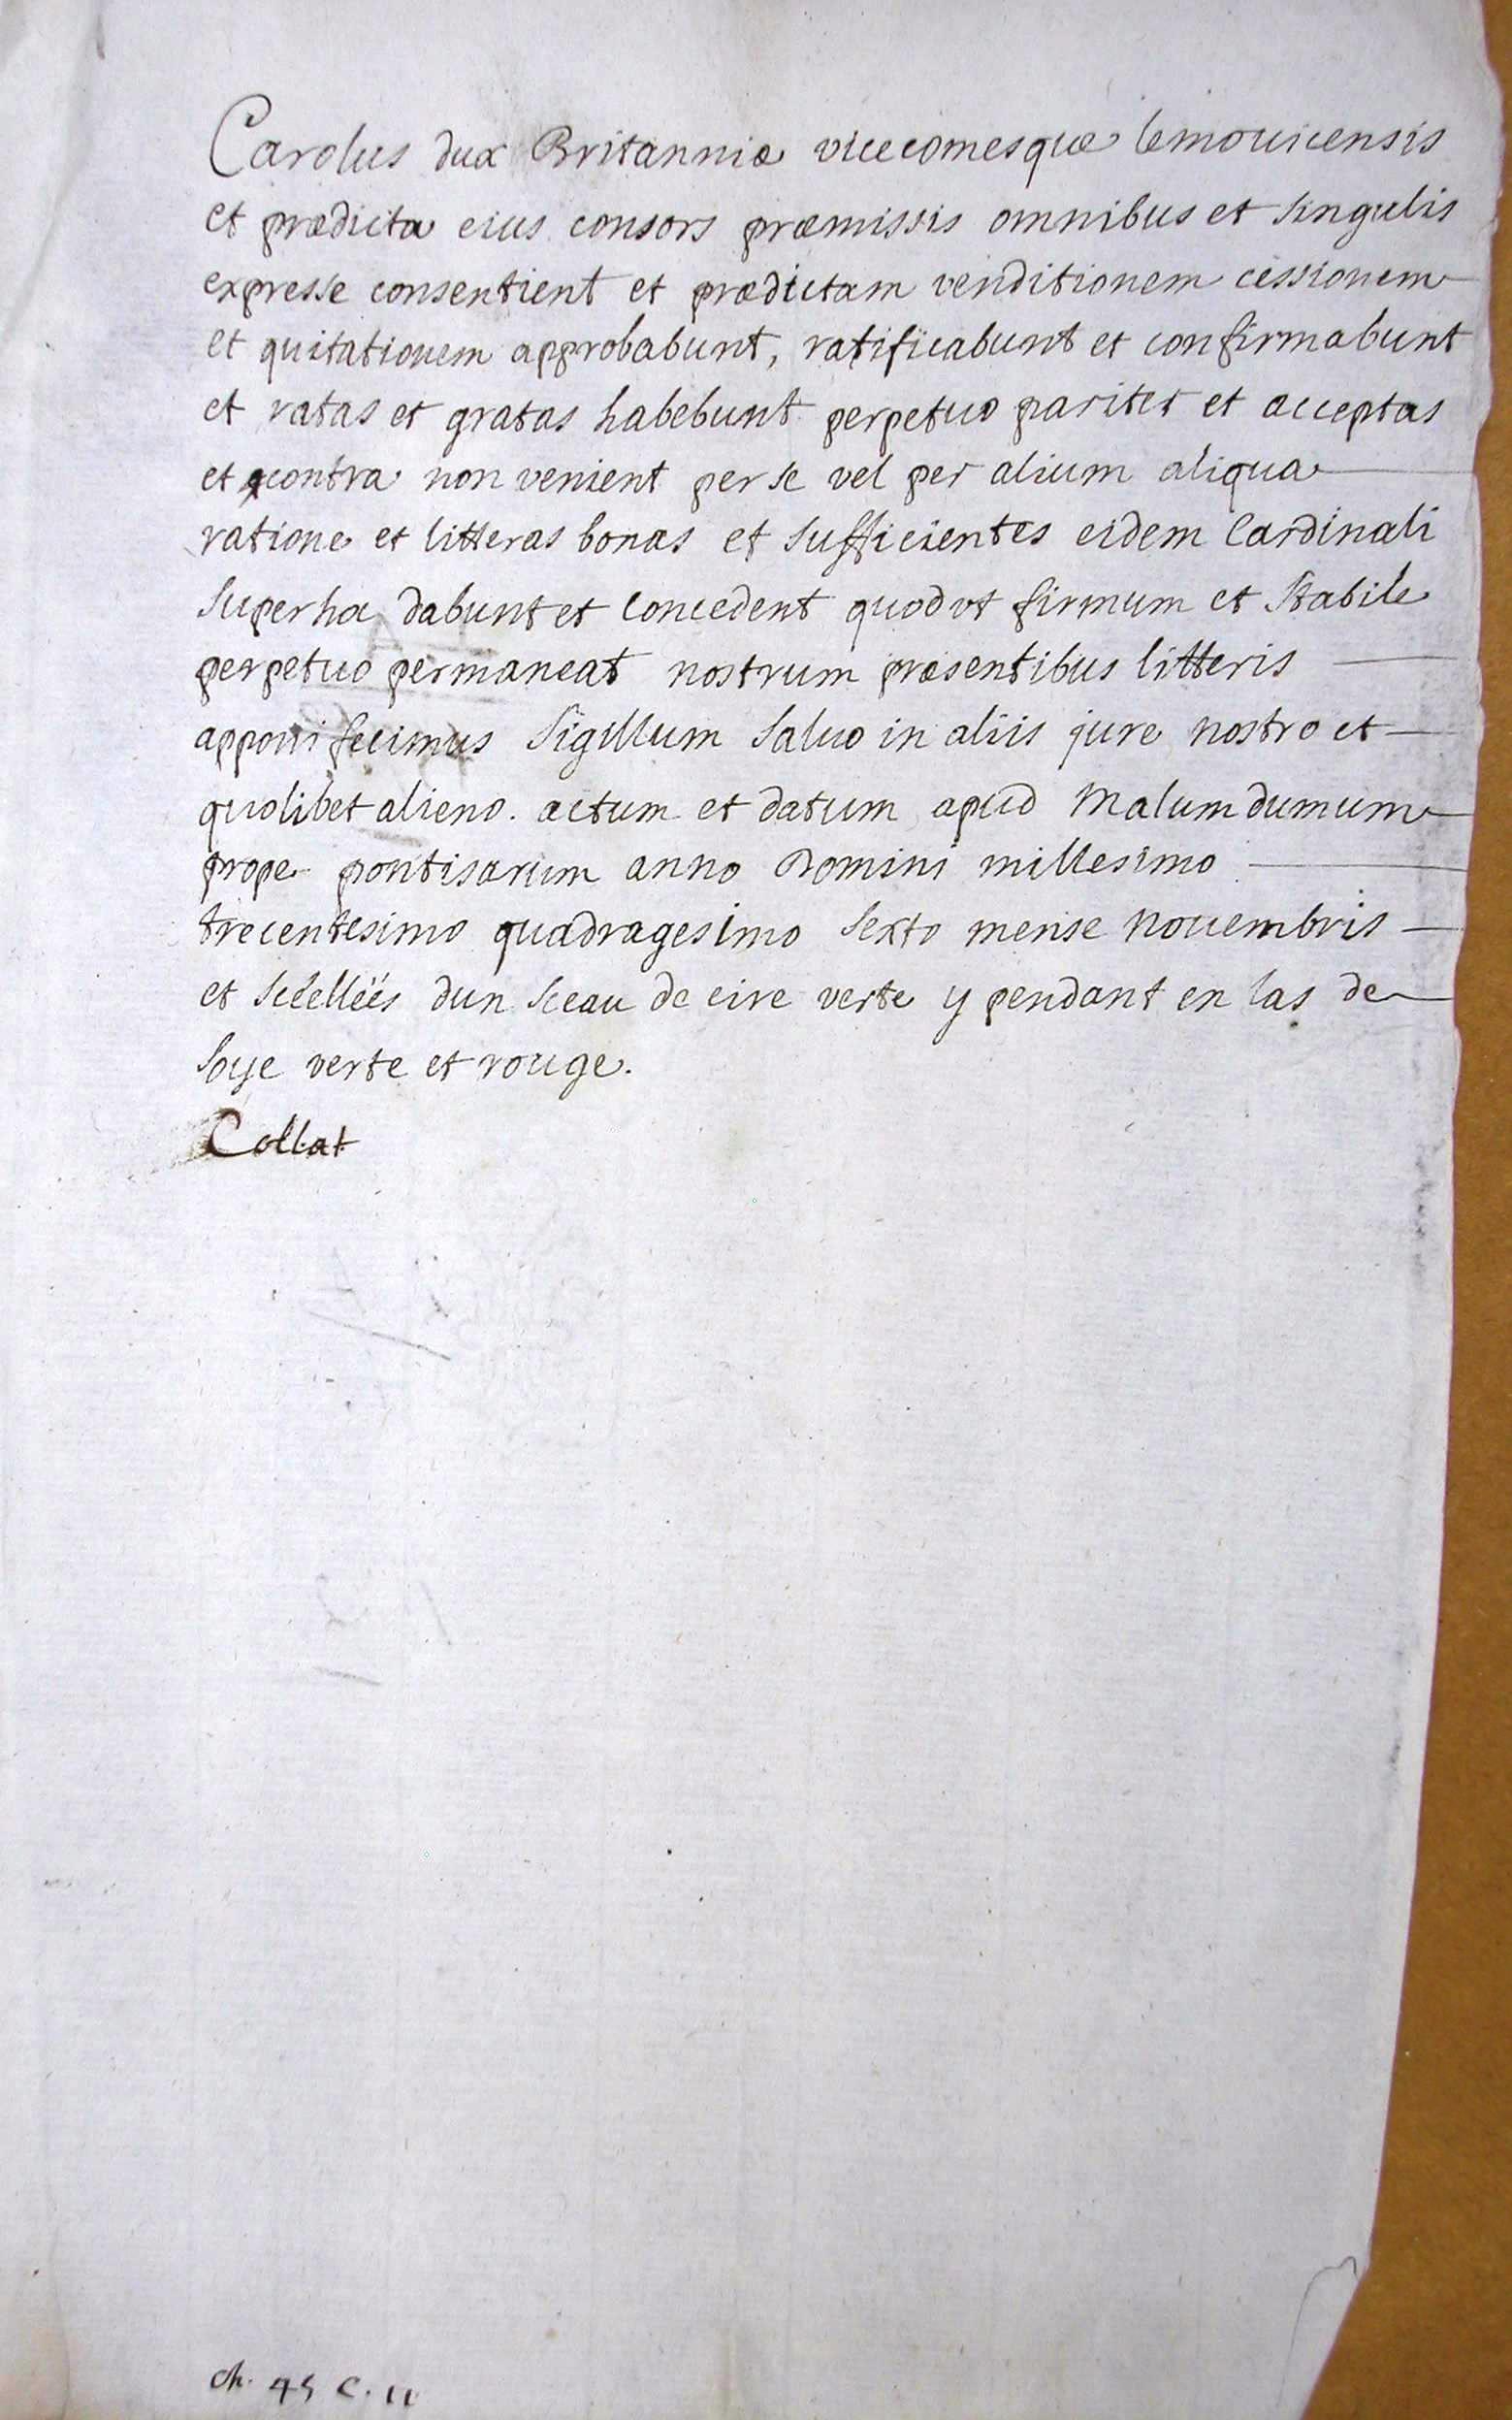 Carolus dux Britanniæ vicecomesque lemouicensis
et prædicta eius consors præmissis omnibus et singulis
expresse consentient et prædictam venditionem cessionem
et quitationem approbabunt, ratificabunt et confirmabunt
et ratas et gratas habebunt perpetuo pariter et acceptas
et contra non venient per se vel per alium aliqua
ratione et litteras bonas et sufficientes eidem Cardinali
super hoc dabunt et concedent quod ut firmum et stabile
perpetuo permaneat nostrum præsentibus litteris
apponi fecimus sigillum saluo in aliis jure nostro et
quolibet alieno. actum et datum apud Malumdumum
prope pontisarum anno Domini millesimo
trecentesimo quadragesimo sexto mense Nouembris
et sceellées dun sceau de cire verte y pendant en las de
soye verte et rouge.
Collat
ch. 45 C. 11